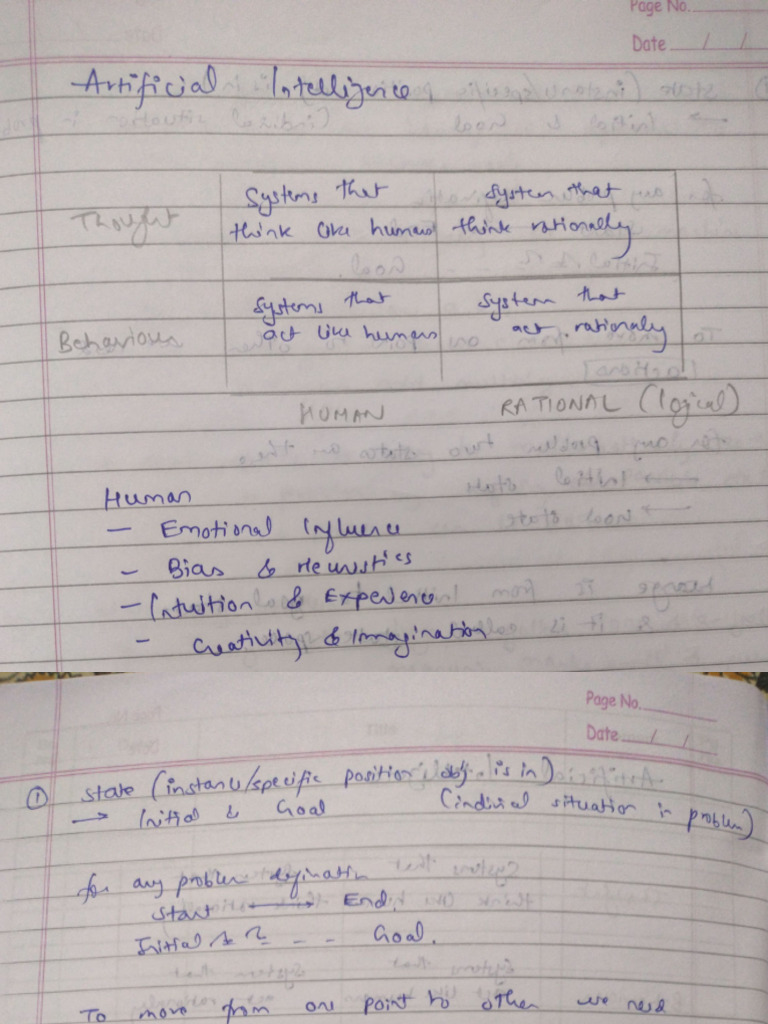 Page No.
Date / /
Artificial Intelligence
Thought
Systems that
think like humans
System that
think rationally
Behaviour
Systems that
act like humans
System that
act rationaly
HUMAN RATIONAL (logical)
Human
- Emotional Influence
- Bias & Heuristics
- Intuition & Experience
- Creativity & Immagination
Page No.
Date / /
① state (instance/specific position obj is in)
→ Initial & Goal (indivial situation in problem)
for any problem defination
Start End
Initial - - Goal.
To move from one point to other we need